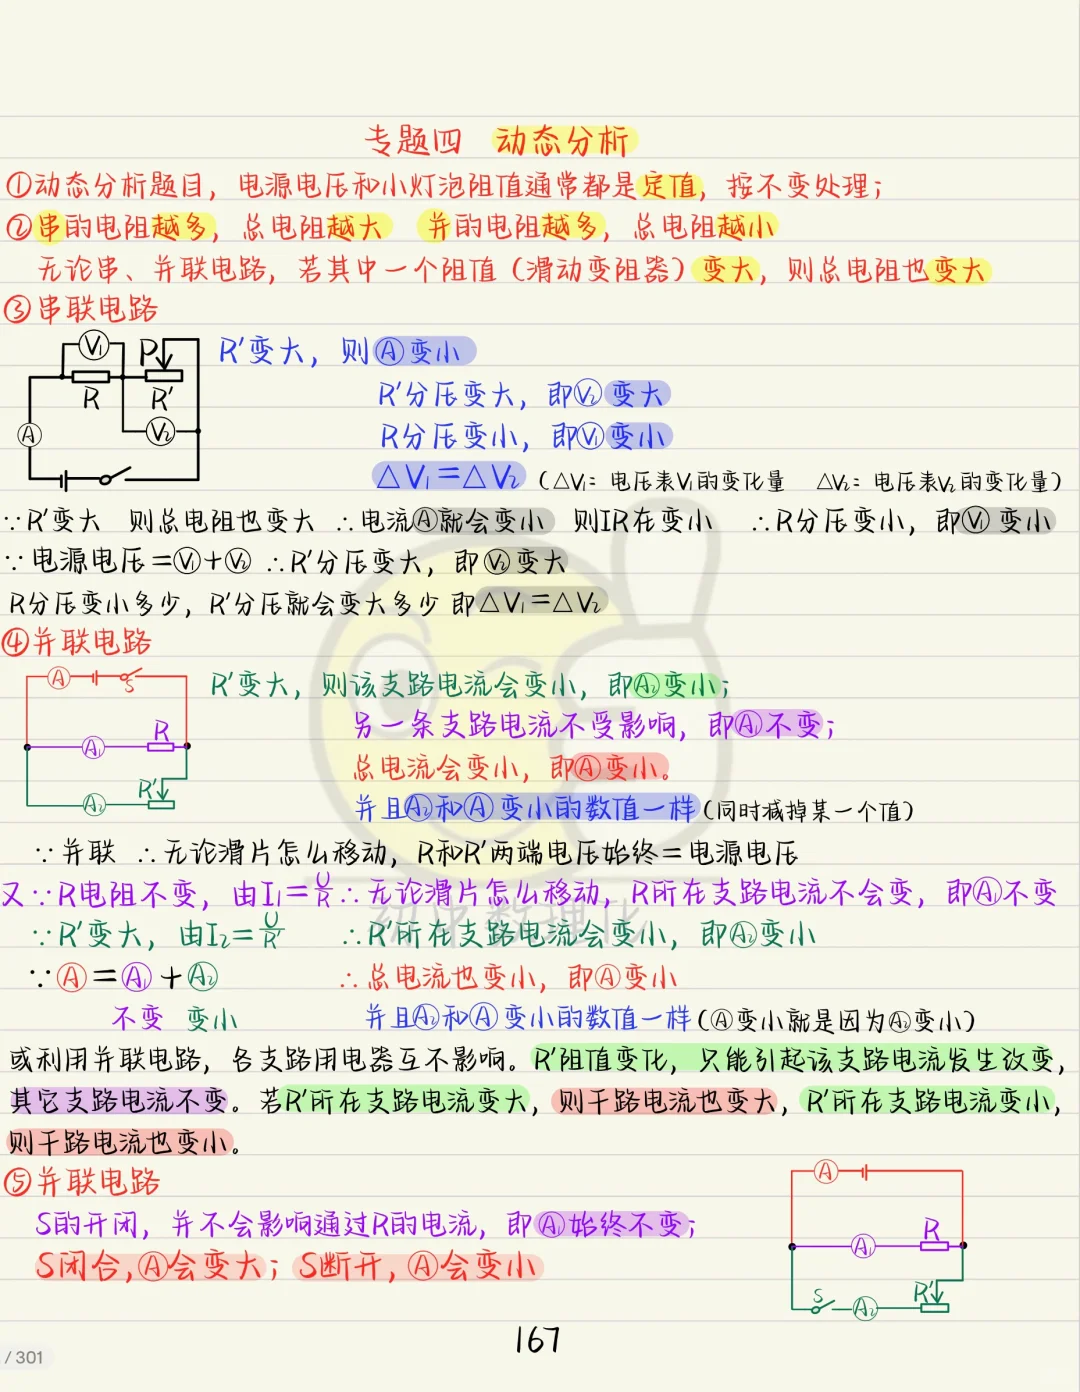 专题四 动态分析
①动态分析题目，电源电压和小灯泡阻值通常都是定值，按不变处理；
②串的电阻越多，总电阻越大 并的电阻越多，总电阻越小
无论串、并联电路，若其中一个阻值（滑动变阻器）变大，则总电阻也变大
③串联电路
V₁ P
R R′
A V₂
R′变大，则Ⓐ变小
R′分压变大，即V₂变大
R分压变小，即V₁变小
△V₁=△V₂（△V₁：电压表V₁的变化量 △V₂：电压表V₂的变化量）
∵R′变大 则总电阻也变大 ∴电流Ⓐ就会变小 则IR在变小 ∴R分压变小，即V₁变小
∵电源电压=V₁+V₂ ∴R′分压变大，即V₂变大
R分压变小多少，R′分压就会变大多少 即△V₁=△V₂
④并联电路
A S
A₁ R
A₂ R′
R′变大，则该支路电流会变小，即A₂变小；
另一条支路电流不受影响，即A₁不变；
总电流会变小，即Ⓐ变小。
并且A₂和Ⓐ变小的数值一样（同时减掉某一个值）
∵并联 ∴无论滑片怎么移动，R和R′两端电压始终=电源电压
又∵R电阻不变，由I₁=U/R ∴无论滑片怎么移动，R所在支路电流不会变，即A₁不变
∵R′变大，由I₂=U/R′ ∴R′所在支路电流会变小，即A₂变小
∵Ⓐ=A₁+A₂ ∴总电流也变小，即Ⓐ变小
不变 变小 并且A₂和Ⓐ变小的数值一样（Ⓐ变小就是因为A₂变小）
或利用并联电路，各支路用电器互不影响。R′阻值变化，只能引起该支路电流发生改变，
其它支路电流不变。若R′所在支路电流变大，则干路电流也变大，R′所在支路电流变小，
则干路电流也变小。
⑤并联电路
S的开闭，并不会影响通过R的电流，即A₁始终不变；
S闭合，Ⓐ会变大；S断开，Ⓐ会变小
A
A₁ R
S A₂ R′
167
/ 301
初中数理化